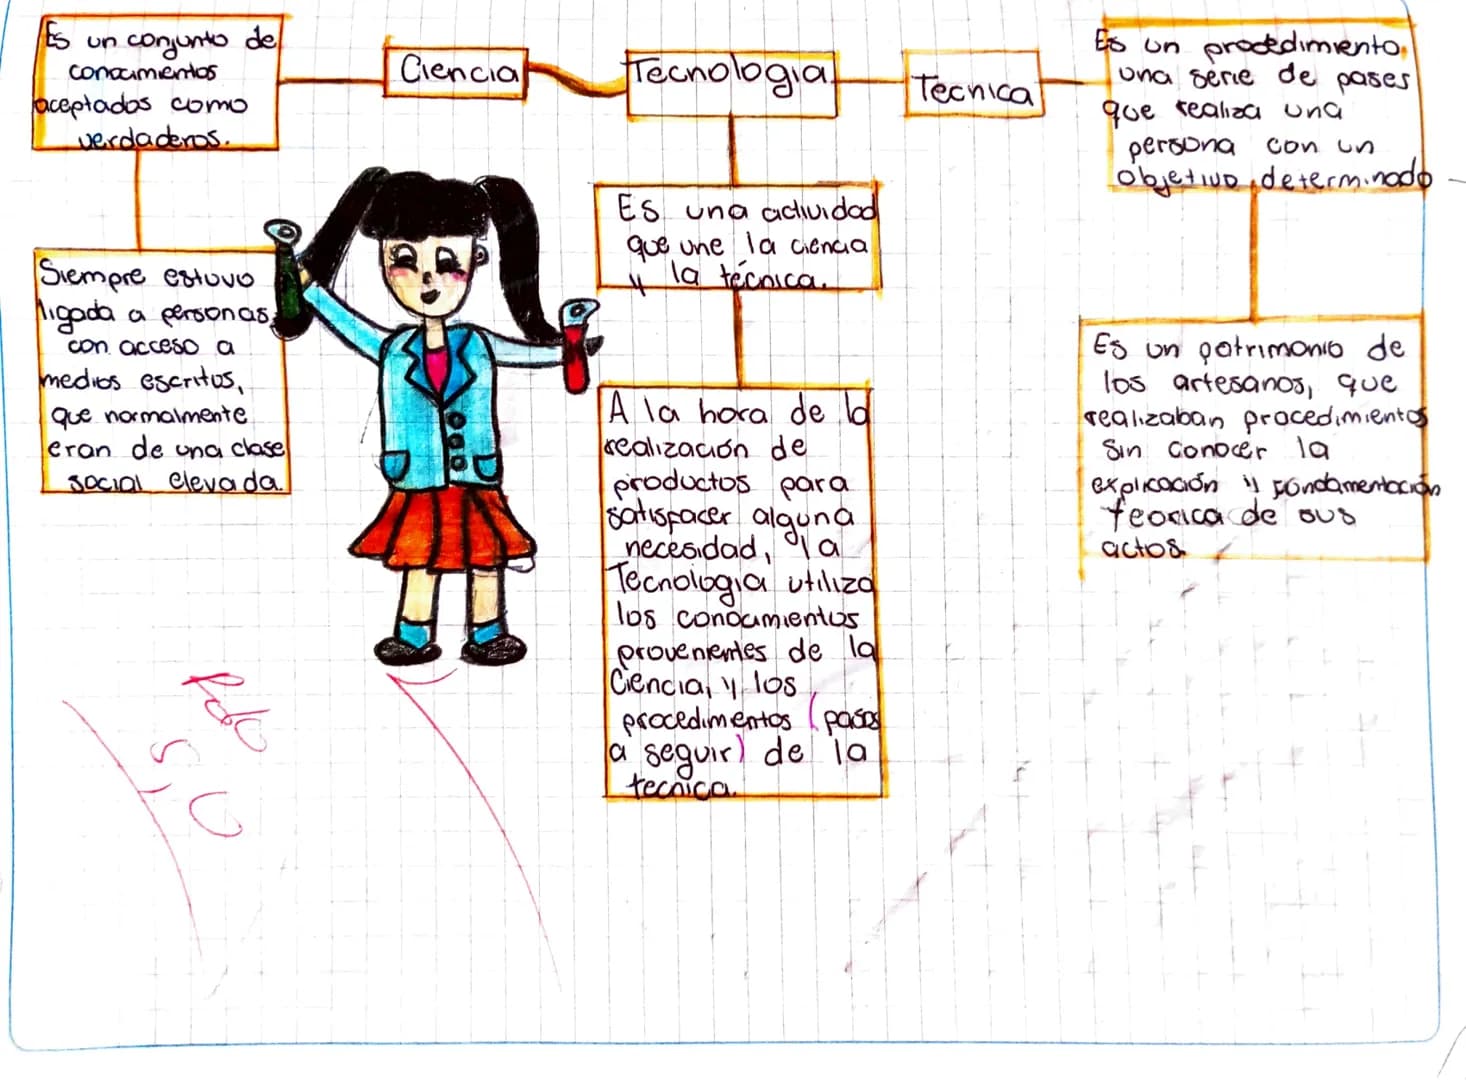 Es un conjunto de
conocimientos
aceptados como
verdaderos.
Ciencia
Tecnologia
Tecnica
Es un procedimiento,
una serie de pases
que realiza una
persona con un
objetivo determinado
Siempre estuvo
ligada a personas
con acceso a
medios escritos,
que normalmente
eran de una clase
social elevada.
Es una actividad
que une la ciencia
y la técnica.
A la hora de la
realización de
productos para
satisfacer alguna
necesidad, la
Tecnologia utiliza
los conocimientos
provenientes de la
Ciencia, y los
procedimentos (pasos
a seguir) de la
tecnica.
Es un patrimonio de
los artesanos, que
realizaban procedimientos
sin conocer la
explicación y fundamentación
teorica de sus
actos.
5,0